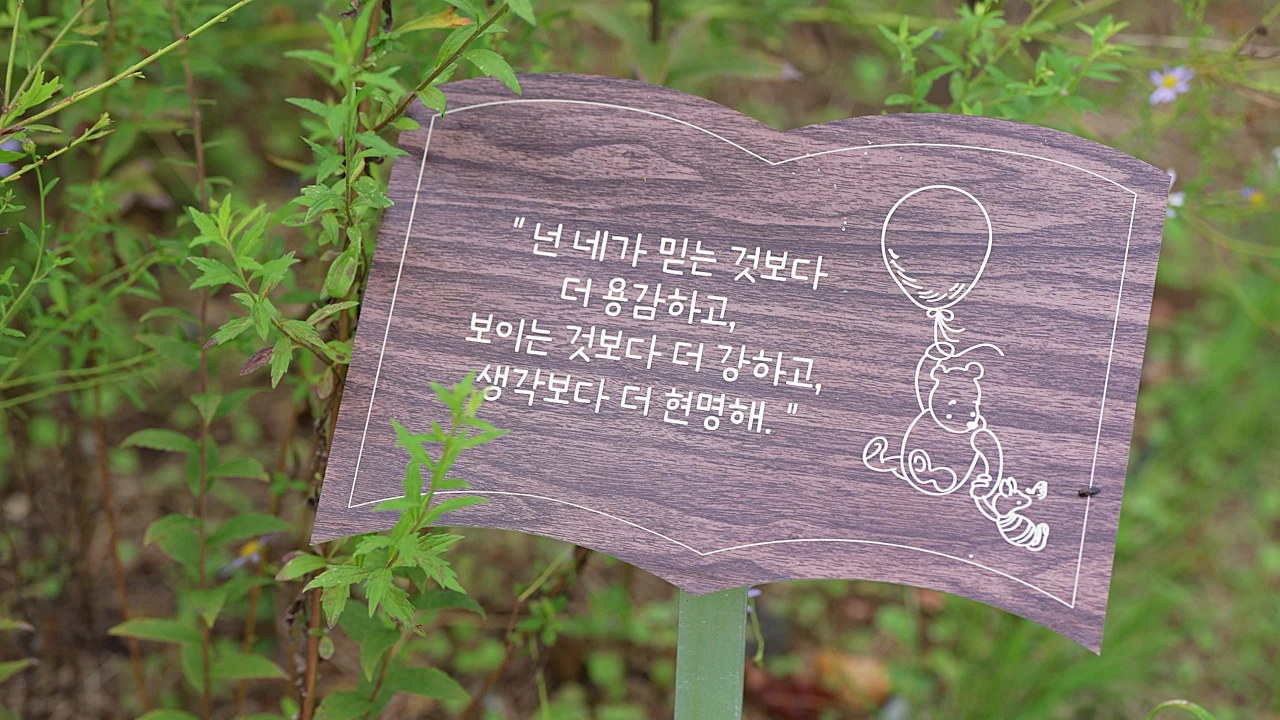 " 넌 네가 믿는 것보다
더 용감하고,
보이는 것보다 더 강하고,
생각보다 더 현명해. "